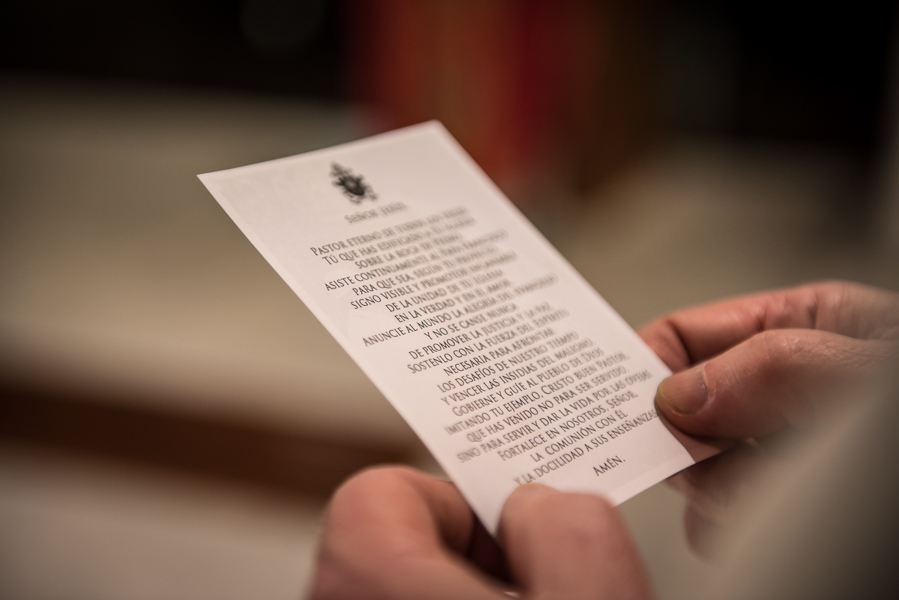 SEÑOR JESÚS,
PASTOR ETERNO DE TODOS LOS FIELES,
TÚ QUE HAS EDIFICADO TU IGLESIA
SOBRE LA ROCA DE PEDRO,
ASISTE CONTINUAMENTE AL PAPA FRANCISCO
PARA QUE SEA, SEGÚN TU PROYECTO,
SIGNO VISIBLE Y PROMOTOR INCANSABLE
DE LA UNIDAD DE TU IGLESIA
EN LA VERDAD Y EN EL AMOR.
ANUNCIE AL MUNDO LA ALEGRÍA DEL EVANGELIO
Y NO SE CANSE NUNCA
DE PROMOVER LA JUSTICIA Y LA PAZ.
SOSTENLO CON LA FUERZA DEL ESPÍRITU
NECESARIA PARA AFRONTAR
LOS DESAFÍOS DE NUESTRO TIEMPO
Y VENCER LAS INSIDIAS DEL MALIGNO.
GOBIERNE Y GUÍE AL PUEBLO DE DIOS
IMITANDO TU EJEMPLO, CRISTO BUEN PASTOR,
QUE HAS VENIDO NO PARA SER SERVIDO,
SINO PARA SERVIR Y DAR LA VIDA POR LAS OVEJAS.
FORTALECE EN NOSOTROS, SEÑOR,
LA COMUNIÓN CON ÉL
Y LA DOCILIDAD A SUS ENSEÑANZAS.
AMÉN.